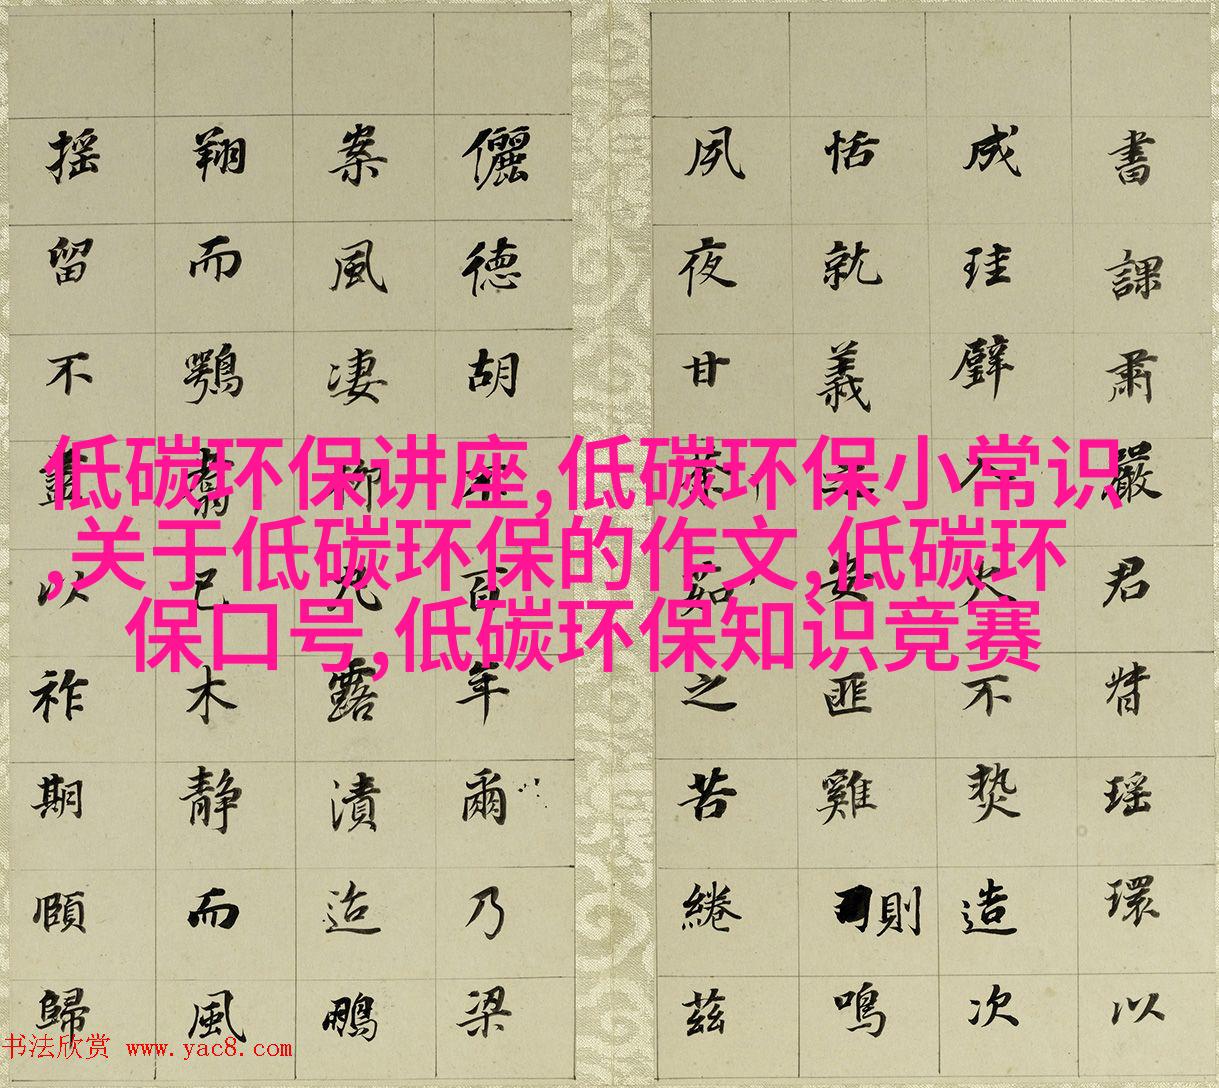 低碳环保讲座,低碳环保小常识
,关于低碳环保的作文,低碳环
保口号,低碳环保知识竞赛
書課肅嚴君瑶環以
成珪璧不爇造次
恬就義安匪雞則鳴
夙夜甘荼茹之苦綣茲
儷德胡百年爾乃梁
案風淒柳露漬迨鵬
翔而鶚翥已木靜而風
揺留不盡以祚期頤歸
书法欣赏 www.yac8.com